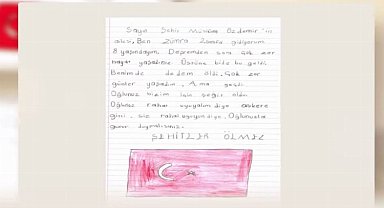 Sayın Şehit Müslüm Özdemir'in
ailesi, Ben Zümra 2.sınıfa gidiyorum
8 yaşındayım. Depremden sonra çok zor
hayat yaşadınız. Üstüne bide bu geldi.
Benimde dedem öldü. Çok zor
günler yaşadım. Ama geçti
Oğlunuz bizim için şehit oldu.
Oğlunuz rahat uyuyalım diye askere
girdi, siz rahat uyuyun diye. Oğlunuzla
gurur duymalısınız.
ŞEHİTLER ÖLMEZ